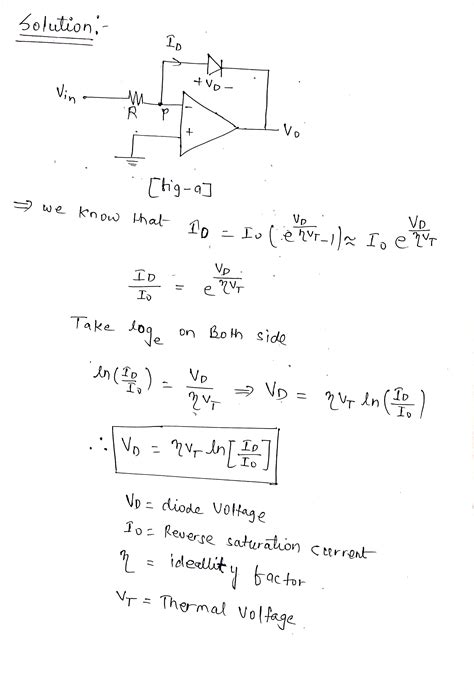 Solution:-
I_D
+V_D-
Vin
R P - + V_O
[fig-a]
⇒ we know that I_D = I_0 (e^{V_D/ηV_T} -1) ≈ I_0 e^{V_D/ηV_T}
I_D/I_0 = e^{V_D/ηV_T}
Take log_e on Both side
ln(I_D/I_0) = V_D/ηV_T ⇒ V_D = ηV_T ln(I_D/I_0)
∴ V_D = ηV_T ln[I_D/I_0]
V_D = diode voltage
I_0 = Reverse saturation current
η = ideallity factor
V_T = Thermal voltage.